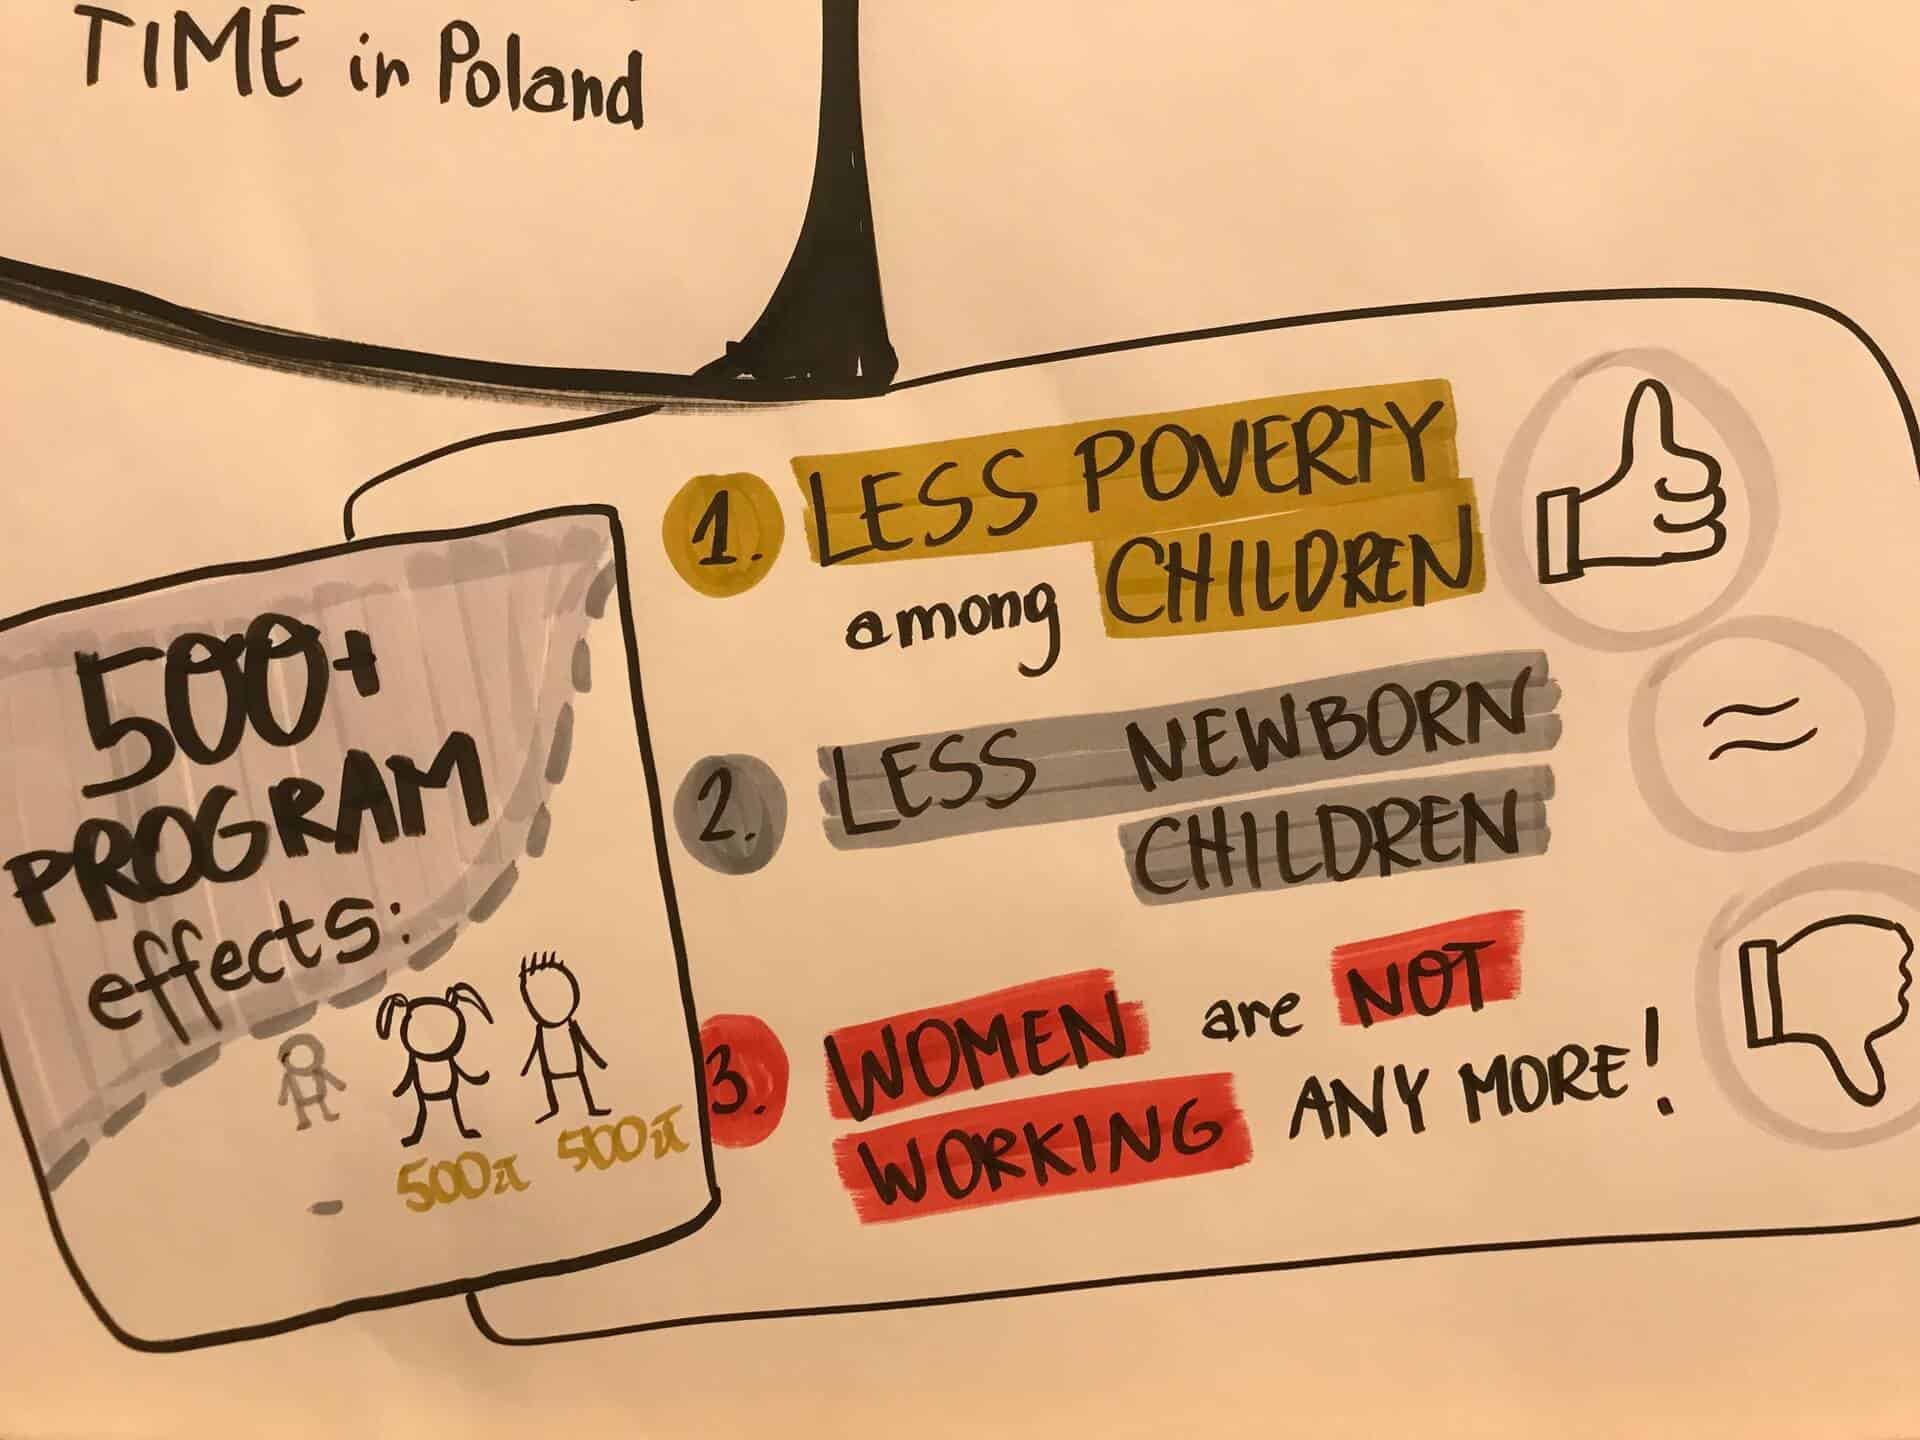 TIME in Poland
500+
PROGRAM
effects:
500zł 500zł
-
1. LESS POVERTY
among CHILDREN
2. LESS NEWBORN
CHILDREN
3. WOMEN are NOT
WORKING ANY MORE!